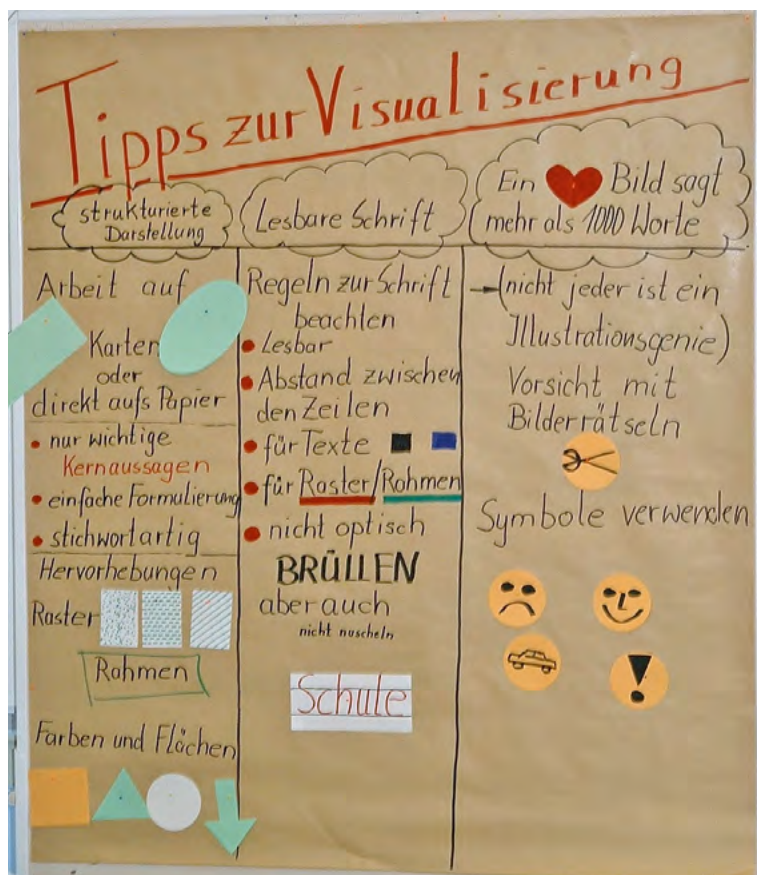 Tipps zur Visualisierung
strukturierte
Darstellung
Arbeit auf
Karten
oder
direkt aufs Papier
• nur wichtige
Kernaussagen
• einfache Formulierung
• stichwortartig
Hervorhebungen
Raster
Rahmen
Farben und Flächen
Lesbare Schrift
Regeln zur Schrift
beachten
• Lesbar
• Abstand zwischen
den Zeilen
• für Texte
• für Raster/Rahmen
• nicht optisch
BRÜLLEN
aber auch
nicht nuscheln
Schule
Ein ❤ Bild sagt
mehr als 1000 Worte
→(nicht jeder ist ein
Illustrationsgenie)
Vorsicht mit
Bilderrätseln
Symbole verwenden